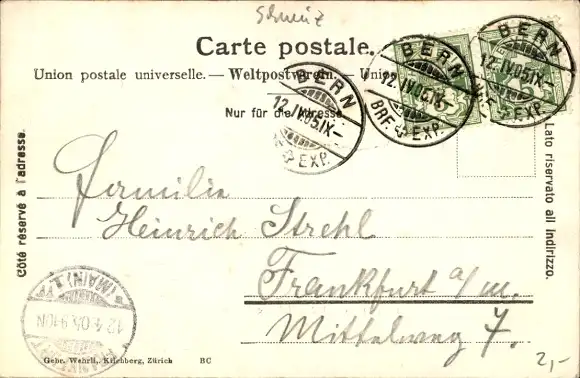 Schweiz
Carte postale.
Union postale universelle. — Weltpostverein. — Unio
Nur für die Adresse
BERN
12.IV.05.IX–
EXP.
BERN
12.IV.05.IX–
BRF. EXP.
BERN
12.IV.05.IX–
BRF. EXP.
Côté réservé à l'adresse.
Lato riservato all indirizzo.
Familie
Heinrich Strehl
Frankfurt a/m.
Mittelweg 7.
FRANKFURT
(MAIN) 1
12.4.05.
Gebr. Wehrli, Kilchberg, Zürich BC
2,-